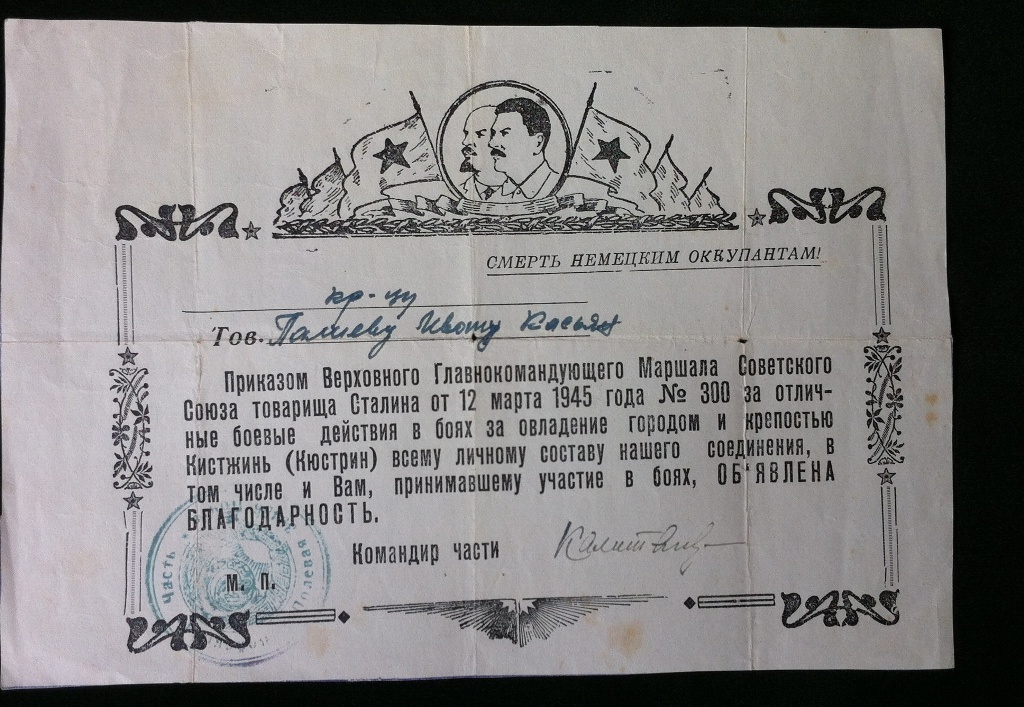 СМЕРТЬ НЕМЕЦКИМ ОККУПАНТАМ!
кр-цу
Тов. Ивану Касьян
Приказом Верховного Главнокомандующего Маршала Советского
Союза товарища Сталина от 12 марта 1945 года № 300 за отлич-
ные боевые действия в боях за овладение городом и крепостью
Кистжинь (Кюстрин) всему личному составу нашего соединения, в
том числе и Вам, принимавшему участие в боях, ОБ'ЯВЛЕНА
БЛАГОДАРНОСТЬ.
Командир части
М. П.
Часть
Полевая